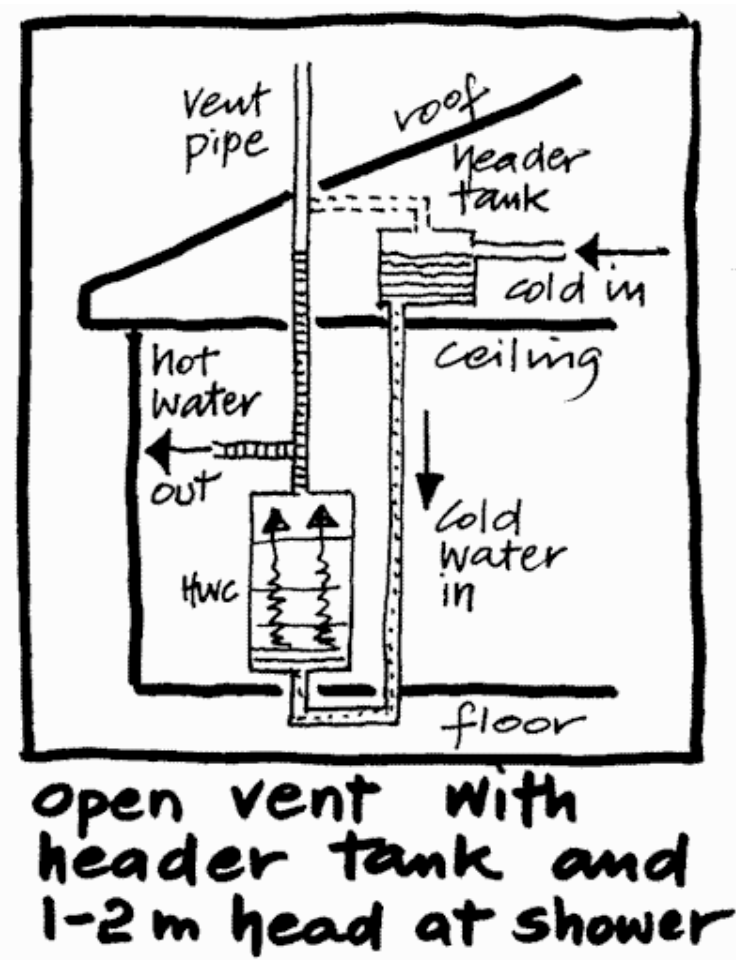 vent
pipe
roof
header
tank
cold in
ceiling
hot
water
out
cold
water
in
HWC
floor
open vent with
header tank and
1-2m head at shower